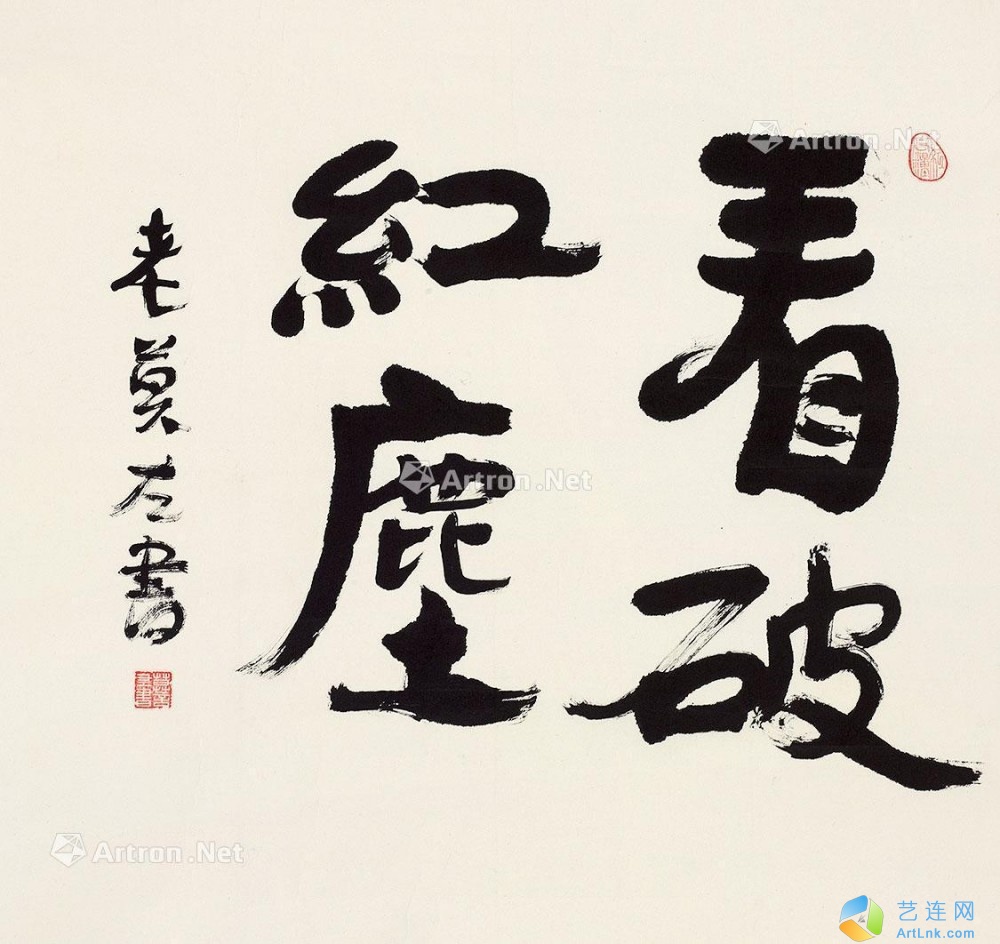 看破
紅塵
老莫左書
Artron.Net
Artron.Net
Artron.Net
艺连网
ArtLnk.com